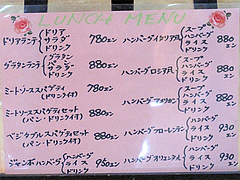 LUNCH MENU
ドリアランチ ドリア サラダ ドリンク 780エン
グラタンランチ グラタン サラダ ドリンク 880エン
ミートソーススパゲティ (パン・ドリンク付) 780エン
ミートソーススパゲティセット (パン・ドリンク付) 880エン
ベジタブルスパゲティセット (パン・ドリンク付) 880エン
ジャンボハンバーグ ハンバーグ ライス ドリンク 950エン
ハンバーグイタリア風 スープ ハンバーグ ライス ドリンク 880エン
ハンバーグロシア風 スープ ハンバーグ ライス ドリンク 880エン
ハンバーグ ハンバーグ ライス ドリンク 880エン
ハンバーグフローレンティーン ハンバーグ ライス ドリンク 930エン
ハンバーグオリエンタル ハンバーグ ライス ドリンク 930エン